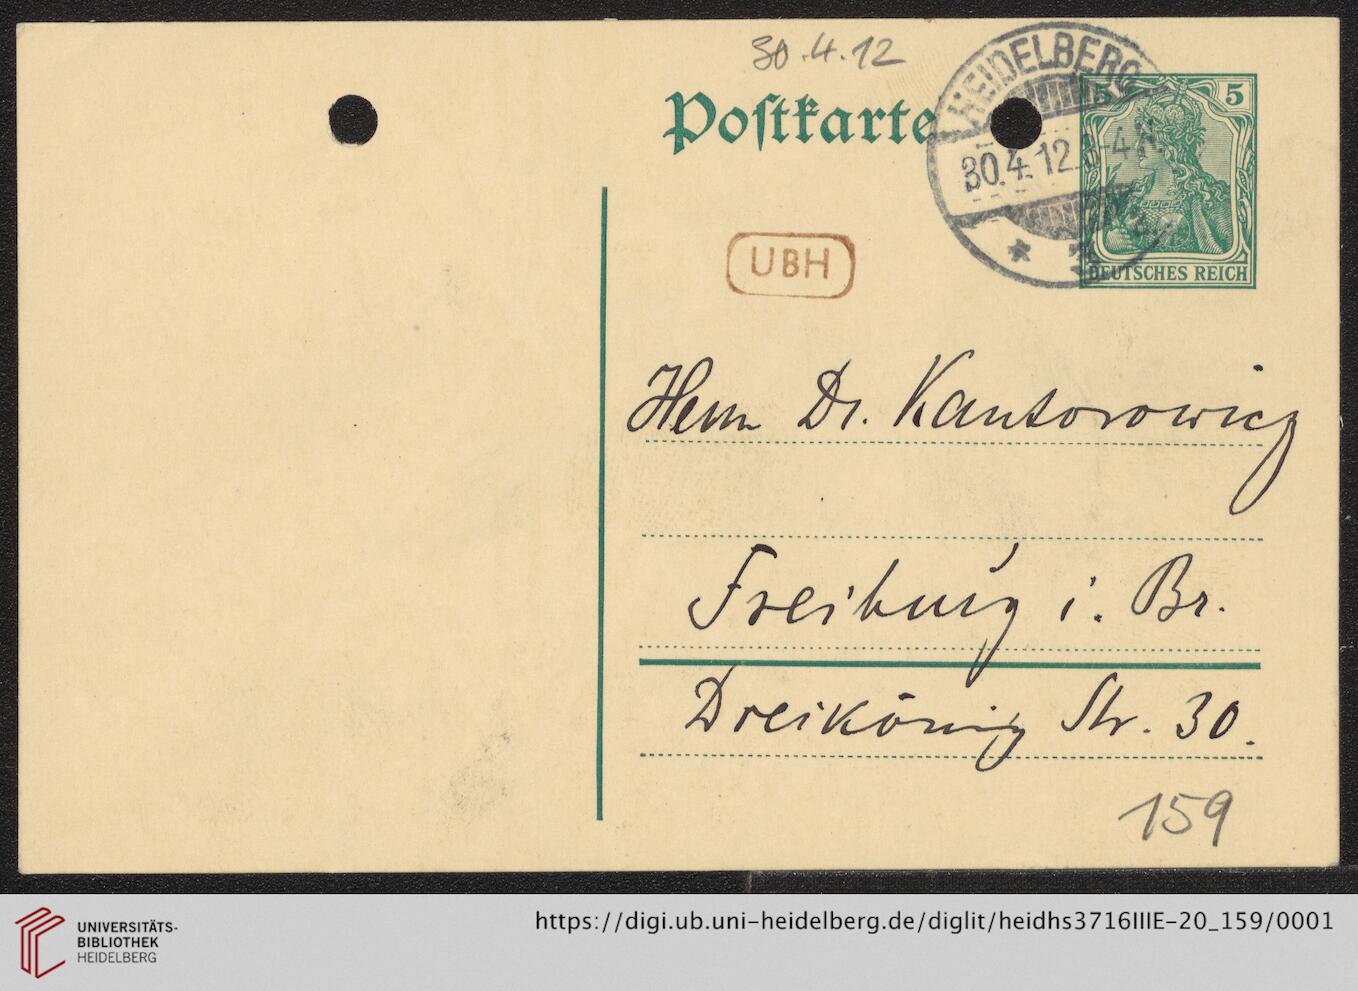 30.4.12
Postkarte
HEIDELBERG
30.4.12. 3-4 N.
5 5
DEUTSCHES REICH
UBH
Herrn Dr. Kantorowicz
Freiburg i. Br.
Dreikönig Str. 30.
159
UNIVERSITÄTS-
BIBLIOTHEK
HEIDELBERG
https://digi.ub.uni-heidelberg.de/diglit/heidhs3716IIIE-20_159/0001